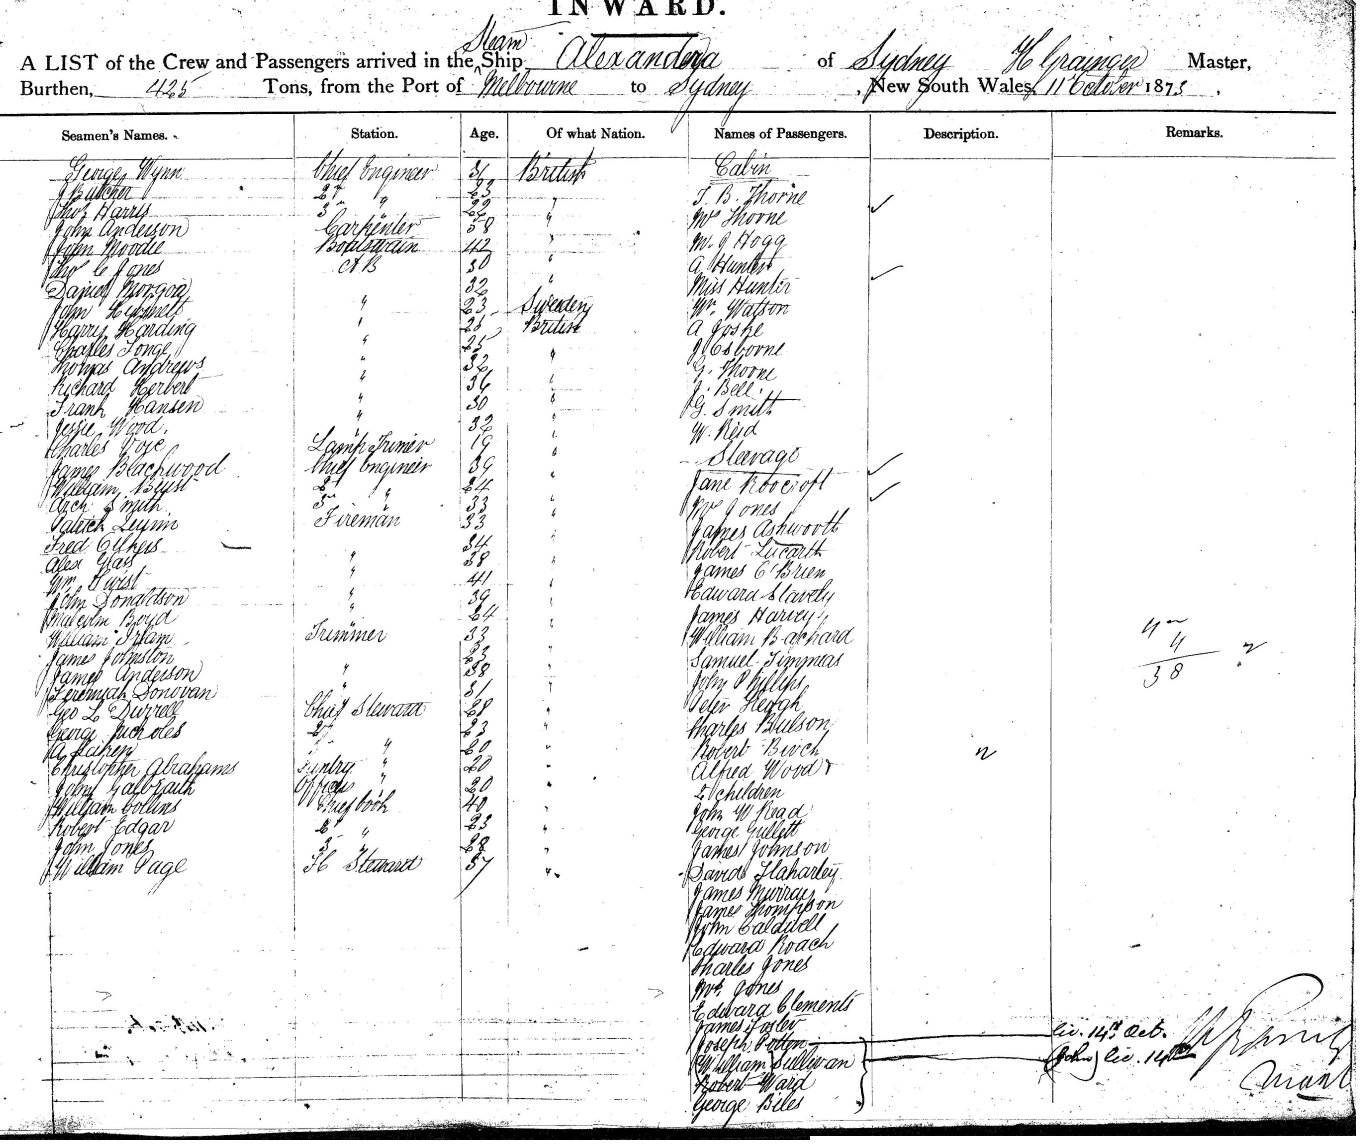 INWARD.
A LIST of the Crew and Passengers arrived in the Steam Ship Alexandra of Sydney H Grainger Master,
Burthen, 425 Tons, from the Port of Melbourne to Sydney, New South Wales, 11 October 1873,
Seamen's Names. Station. Age. Of what Nation. Names of Passengers. Description. Remarks.
George Wynn Chief Engineer 36 British
J Butcher 2d " 23 "
Thos Harris 3 " 22 "
John Anderson Carpenter 58 "
John Moodie Boatswain 42 "
Thos C Jones AB 30 "
Daniel 32
John 23 Sweden
Harry Harding " 25 British
Charles Tonge " 25 "
Thomas Andrews " 32 "
Richard Herbert " 36 "
Frank Hansen " 30 "
Jessie Wood. " 32 "
Charles 19 "
James Blackwood Lamp Trimmer
William Chief Engineer 39 "
Arch Smith 2d " 24 "
Patrick 33 "
Fred Fireman 33 "
Alex Glass " 38 "
Wm Twist " 41 "
John Donaldson " 39 "
Malcolm Boyd " 24 "
William Irlam Trimmer 33 "
James Johnston 23 "
James Anderson " 38 "
Jeremiah Donovan " 31 "
Geo L Durrell Chief Steward 28 "
George Nicholes 2d 23 "
A " 20 "
Christopher Abrahams Pantry " 20 "
John Galbraith Officers " 20 "
William Collins Chief Cook 40 "
Robert Edgar 2d " 23 "
John Jones 3 " 28 "
William Page Steward 37 "
Cabin
T. B. Thorne
Mrs Thorne
Mr J Hogg
A Hunter
Miss Hunter
Mr. Watson
A Joske
J Osborne
G. Thorne
J. Bell.
G. Smith
W. Reid
Steerage
Jane Roocroft
Mrs Jones
James Ashworth
Robert
James O'Brien
Edward Slavely
James Harvey
William Bachard
Samuel Timmins
John Phillips
Peter Keogh
Charles Bulson
Robert Birch
Alfred Wood
2 children
John W Read
George Gullett
James Johnson
David Flaharley
James Murray
James Thompson
John Caldwell
Edward Roach
Charles Jones
Mrs. Jones
Edward Clements
James Foster
Joseph Potton liv. 14th Oct.
William Sullivan (John) liv. 14th
Robert Ward
George Biles
4
38